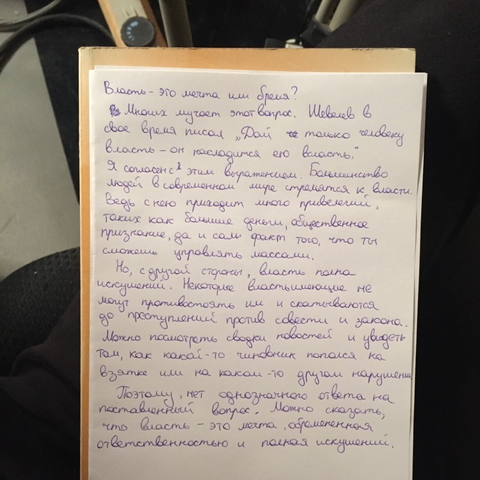 Власть - это мечта или бремя?
Многих мучает этот вопрос. Шевелев в
свое время писал „Дай только человеку
власть - он насладится ею всласть".
Я согласен с этим выражением. Большинство
людей в современном мире стремятся к власти.
Ведь с нею приходит много привелегий,
таких как большие деньги, общественное
признание, да и сам факт того, что ты
сможешь управлять массами.
Но, с другой стороны, власть полна
искушений. Некоторые властьимеющие не
могут противостоять им и скатываются
до преступлений против совести и закона.
Можно посмотреть сводки новостей и увидеть
там, как какой-то чиновник попался на
взятке или на каком-то другом нарушении
Поэтому, нет однозначного ответа на
поставленный вопрос. Можно сказать,
что власть - это мечта, обремененная
ответственностью и полная искушений.